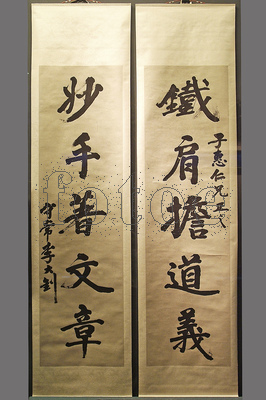 鐵肩擔道義
子惠仁兄正之
妙手著文章
守常李大釗
fotoe